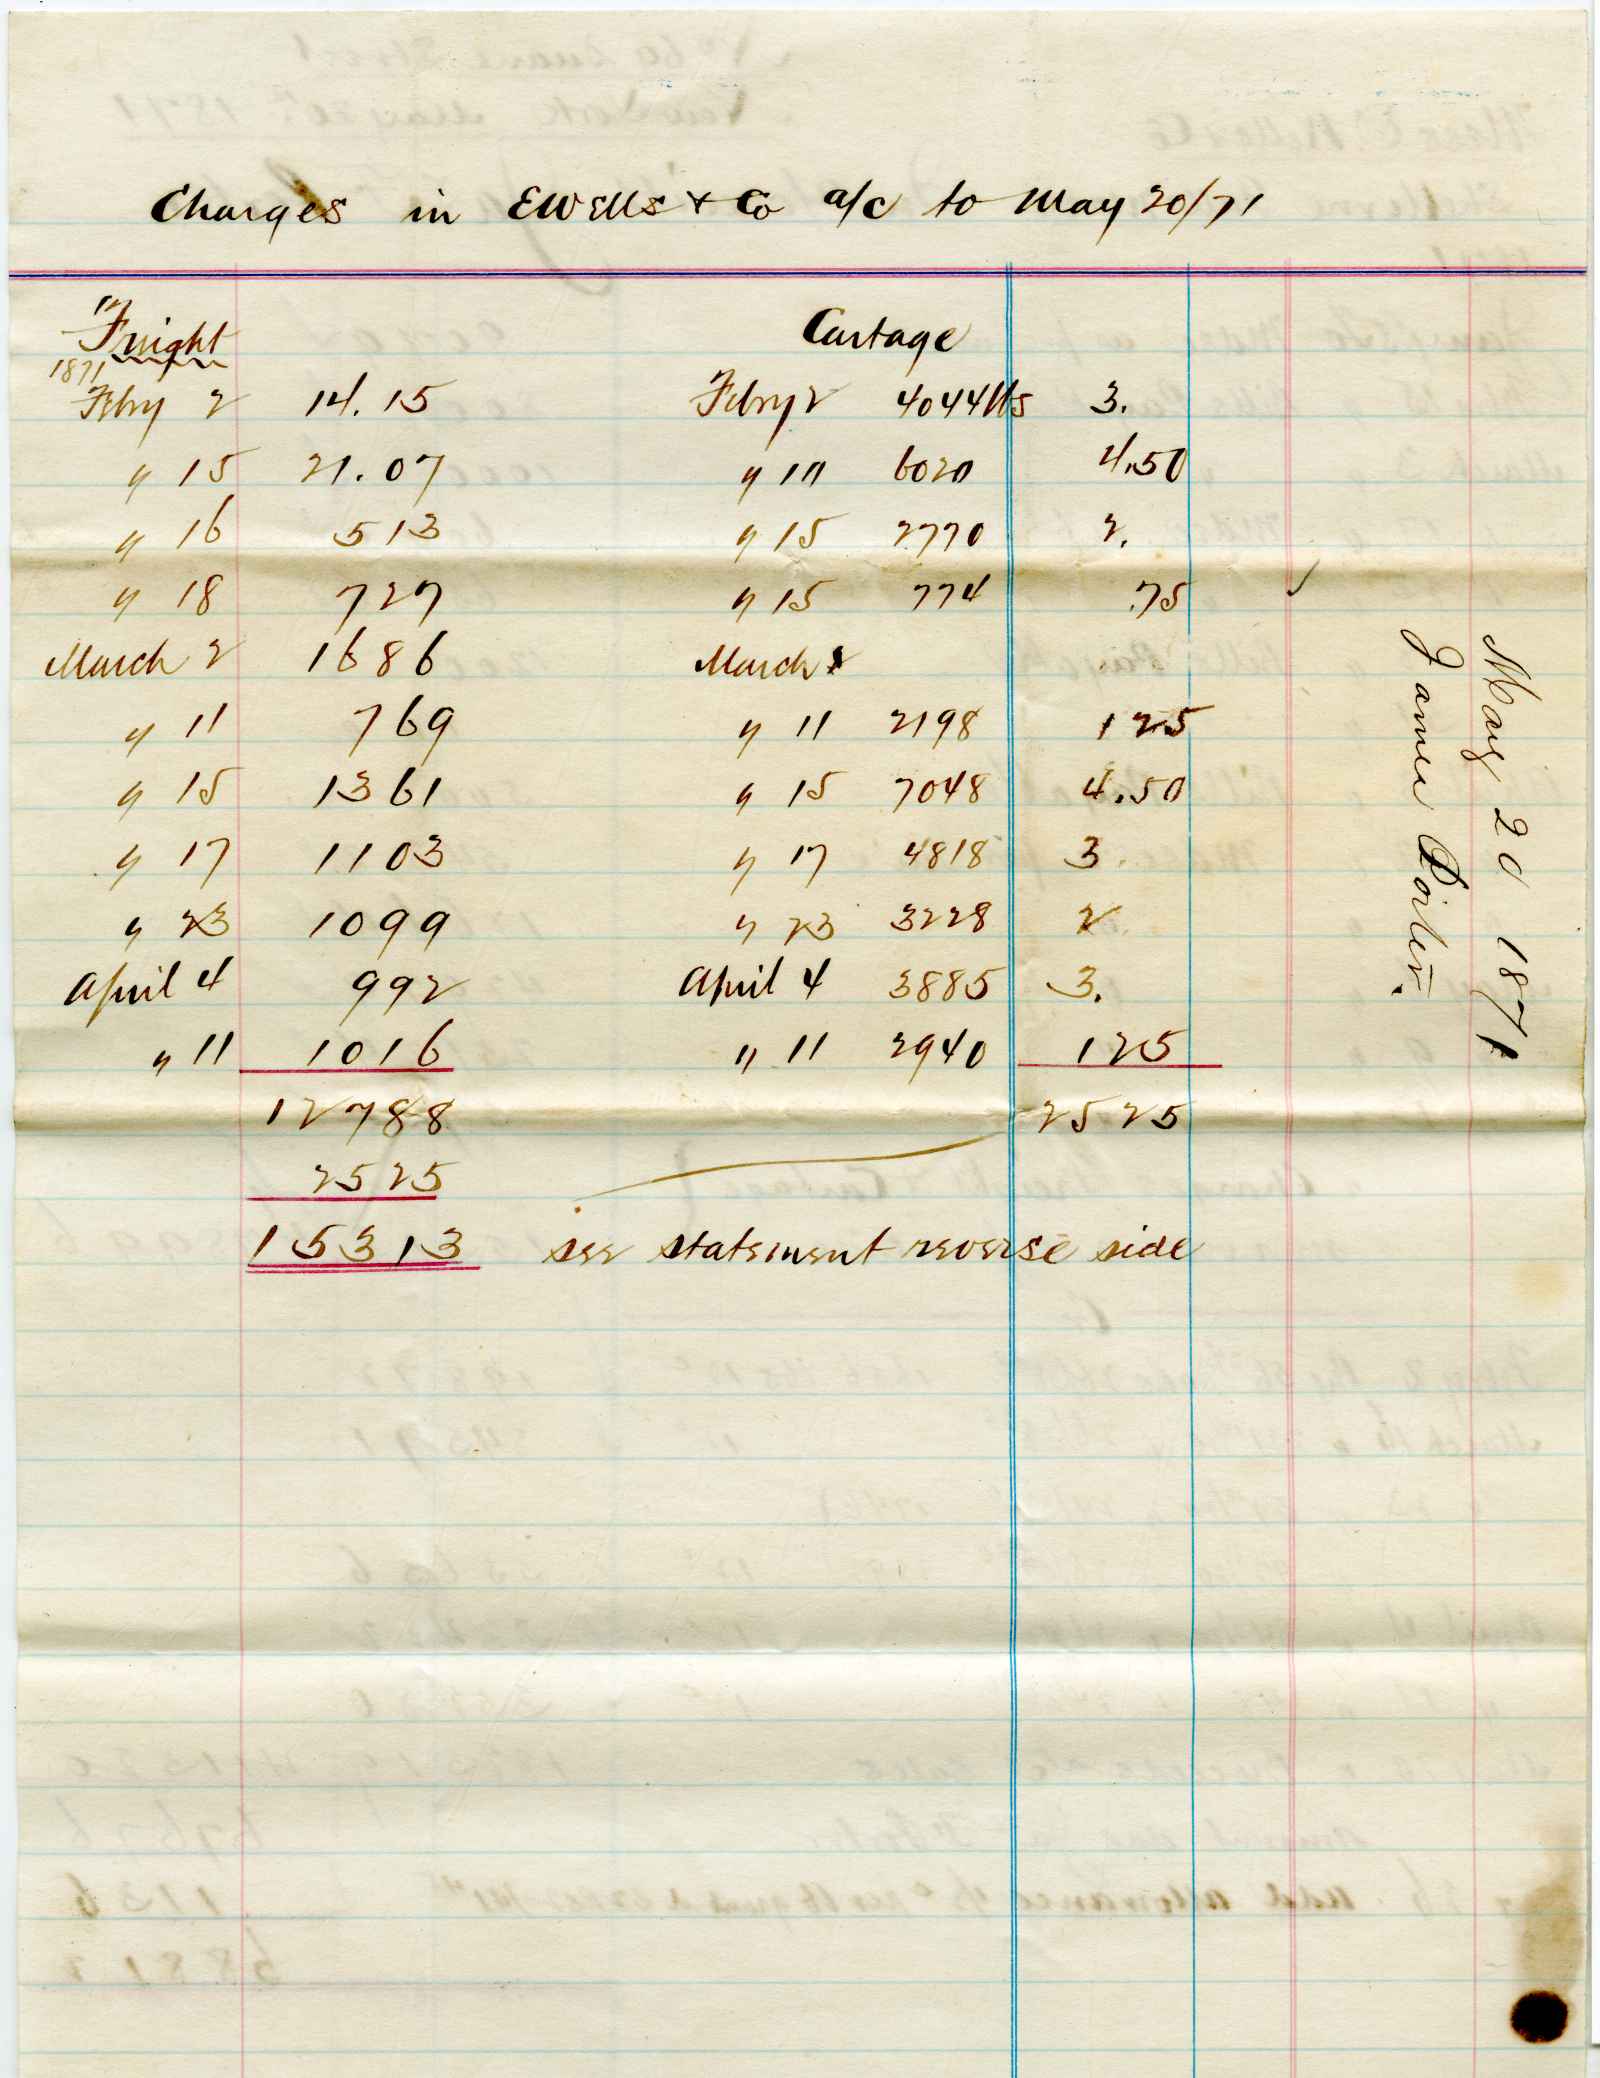 Charges in E Wells & Co a/c to May 20/71
Freight Cartage
1871
Feby 2 14.15 Feby 2 4044 lbs 3.
" 15 21.07 " 10 6020 4.50
" 16 513 " 15 2770 2.
" 18 727 " 15 774 .75
March 2 1686 March 2
" 11 769 " 11 2198 125
" 15 1361 " 15 7048 4.50
" 17 1103 " 17 4818 3.
" 23 1099 " 23 3228 2
April 4 992 April 4 3885 3.
" 11 1016 " 11 2940 125
12788 2525
2525
15313 see statement reverse side
May 20 1871
James